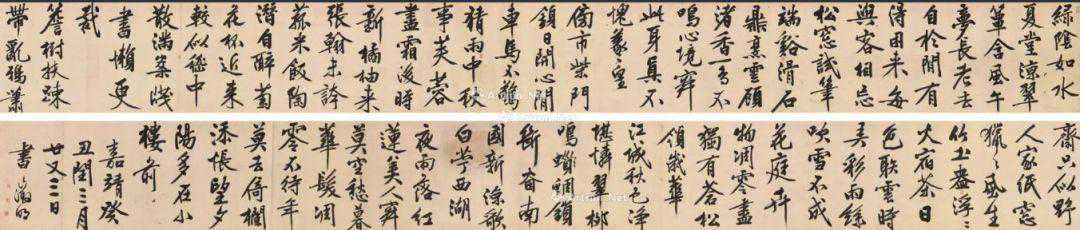 綠陰如水
夏堂涼翠
簟含風午
夢長老去
自於閒有
得困來每
與客相忘
松窗試筆
端谿滑石
鼎烹雲顧
渚香一鳥
鳴心境寂
此身真不
愧羲皇
市柴門
鎖日開心閒
車馬不驚
猜雨中秋
事芙蓉
盡霜後時
新橘柚來
張翰未誇
菰米飯陶
潛自醉菊
花杯近來
較似嵇中
散滿案牋
書懶更
裁
簷樹扶疎
帶亂鴉蕭
齋只似野
人家紙窗
獵〻風生
竹土盎浮〻
火宿茶日
色聯雲時
弄彩雨絲
吹雪不成
花庭卉
物凋零盡
獨有蒼松
領歲華
江城秋色淨
堪憐翠柳
鳴蜩鎖
斷南
國新涼歌
白苧西湖
夜雨落紅
蓮美人寂
莫空愁暮
華髮凋
零不待年
莫去倚欄
添悵望夕
陽多在小
樓前
嘉靖癸
丑閏三月
廿又二日
書徵明